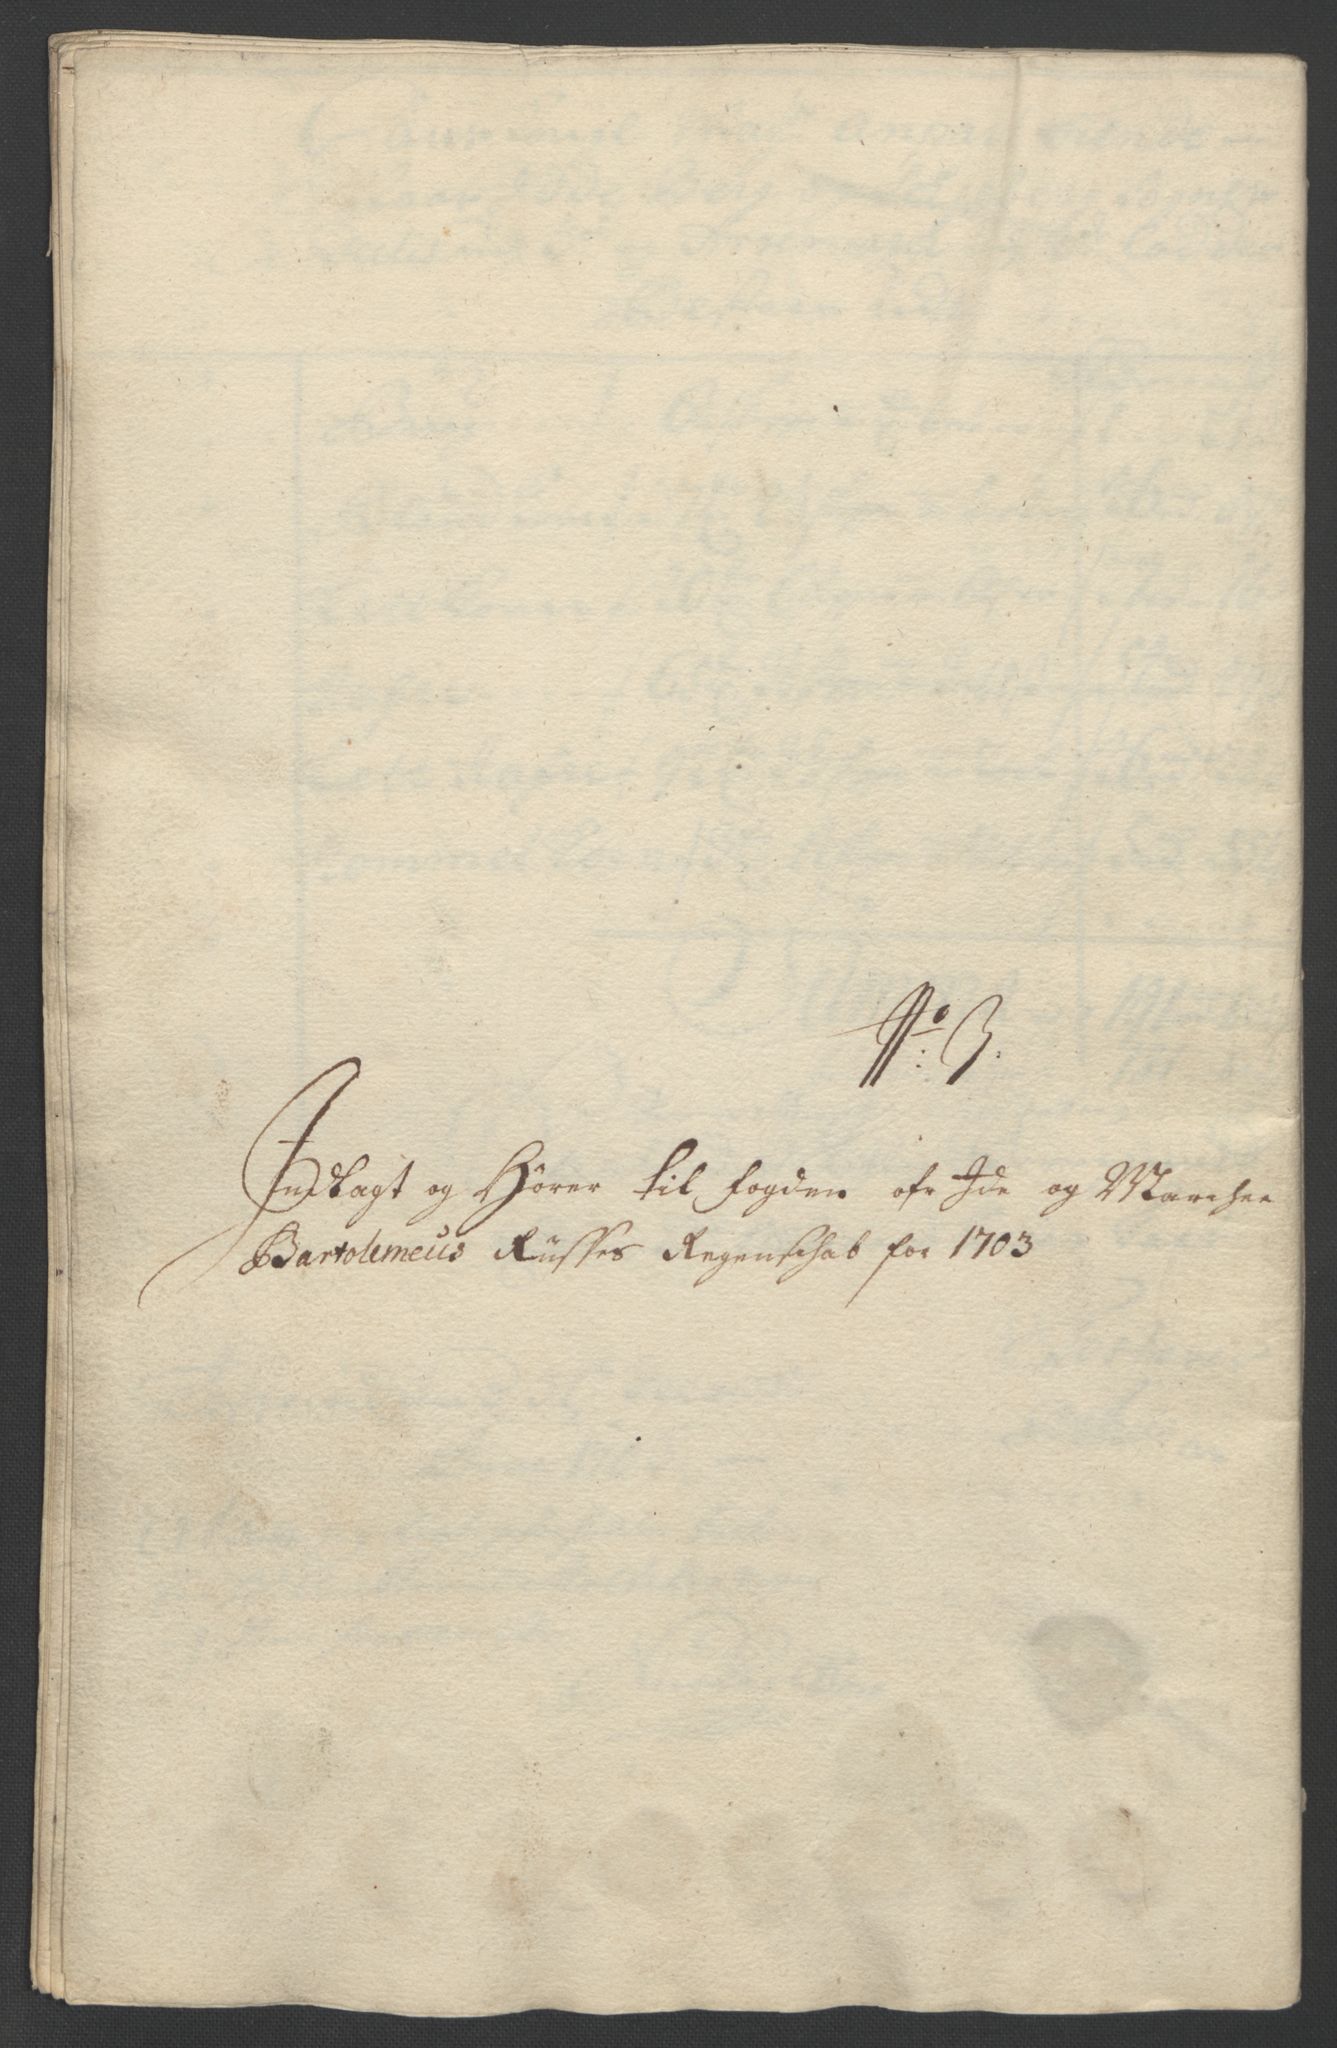 No: 3.
Indlagt og Hörer til fogden ofr Ide og Marcher
Bartolemeus Rüsses Regenschab for 1703